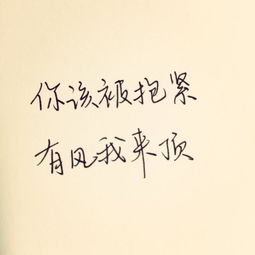 你该被抱紧
有风我来顶